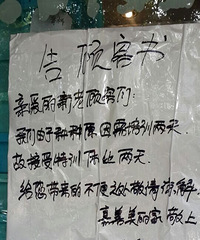 告顾客书
亲爱的新老顾客们:
我们由于种种原因需培训两天.
故接受培训停业两天.
给您带来的不便之处敬请谅解.
嘉善美丽家 敬上